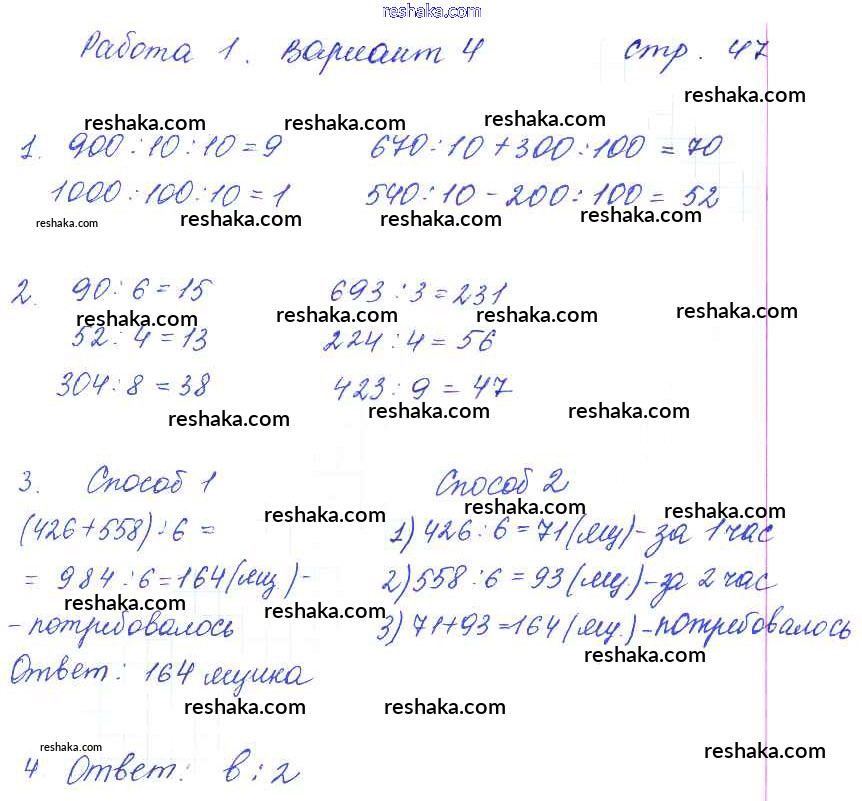 reshaka.com
Работа 1. Вариант 4 стр. 47
reshaka.com
reshaka.com reshaka.com reshaka.com
1. 900:10:10=9 670:10+300:100=70
1000:100:10=1 540:10-200:100=52
reshaka.com reshaka.com reshaka.com reshaka.com
2. 90:6=15 693:3=231
reshaka.com reshaka.com reshaka.com reshaka.com
52:4=13 224:4=56
304:8=38 423:9=47
reshaka.com reshaka.com reshaka.com
3. Способ 1 Способ 2
reshaka.com reshaka.com reshaka.com
(426+558):6= 1) 426:6=71(ящ)-за 1 час
=984:6=164(ящ.)- 2) 558:6=93(ящ.)-за 2 час
reshaka.com reshaka.com
-потребовалось 3) 71+93=164(ящ.)-потребовалось
reshaka.com
Ответ: 164 ящика
reshaka.com reshaka.com
reshaka.com reshaka.com
4. Ответ: в:2